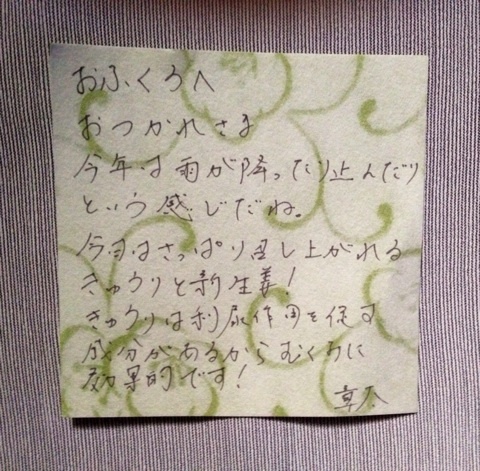 おふくろへ
おつかれさま
今年は雨が降ったり止んだり
という感じだね。
今日はさっぱり召し上がれる
きゅうりと新生姜!
きゅうりは利尿作用を促す
成分があるからむくみに
効果的です!